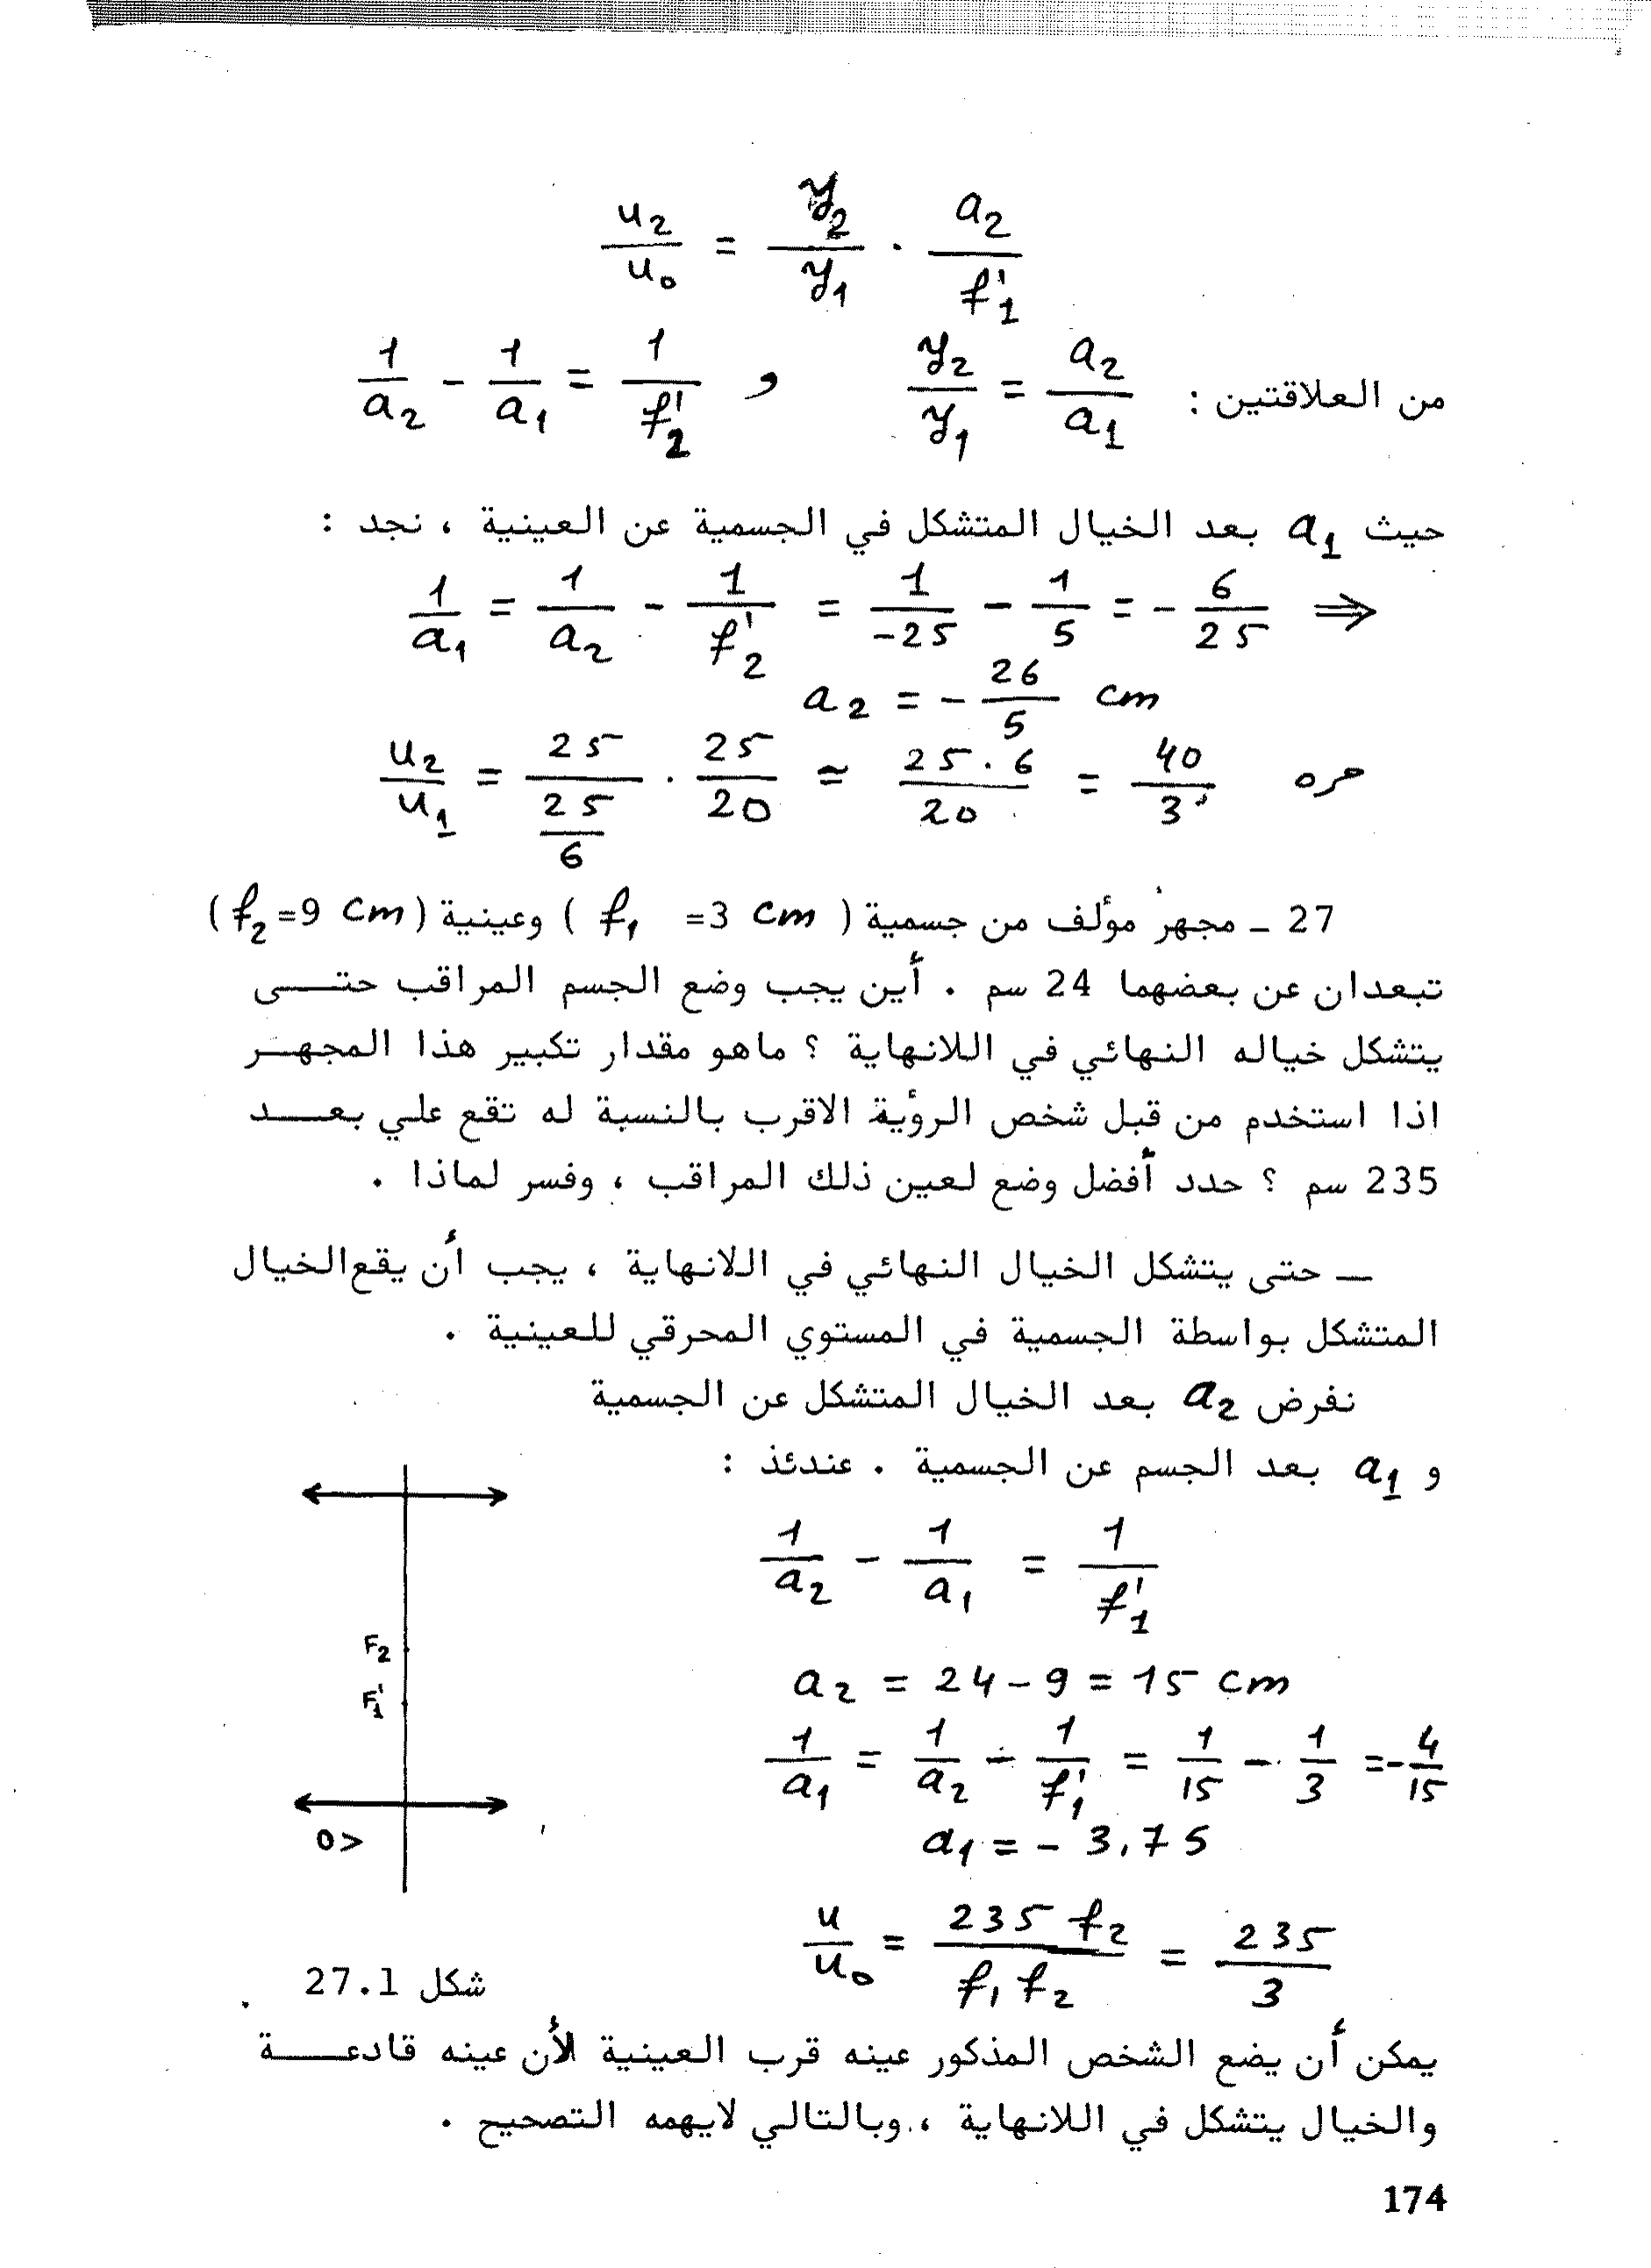 u₂/u₀ = y₂/y₁ · a₂/f'₁
من العلاقتين : y₂/y₁ = a₂/a₁ و 1/a₂ - 1/a₁ = 1/f'₂
حيث a₁ بعد الخيال المتشكل في الجسمية عن العينية ، نجد :
1/a₁ = 1/a₂ - 1/f'₂ = 1/-25 - 1/5 = - 6/25 ⇒
a₂ = - 26/5 cm
u₂/u₁ = 25/(25/6) · 25/20 = 25.6/20 = 40/3 مره
27 ـ مجهر مؤلف من جسمية ( f₁ =3 cm ) وعينية (f₂=9 cm)
تبعدان عن بعضهما 24 سم . أين يجب وضع الجسم المراقب حتى
يتشكل خياله النهائي في اللانهاية ؟ ماهو مقدار تكبير هذا المجهر
اذا استخدم من قبل شخص الرؤية الاقرب بالنسبة له تقع علي بعد
235 سم ؟ حدد أفضل وضع لعين ذلك المراقب ، وفسر لماذا .
ـ حتى يتشكل الخيال النهائي في اللانهاية ، يجب أن يقع الخيال
المتشكل بواسطة الجسمية في المستوي المحرقي للعينية .
نفرض a₂ بعد الخيال المتشكل عن الجسمية
و a₁ بعد الجسم عن الجسمية . عندئذ :
1/a₂ - 1/a₁ = 1/f'₁
a₂ = 24-9 = 15 cm
1/a₁ = 1/a₂ - 1/f'₁ = 1/15 - 1/3 =- 4/15
a₁ = - 3,75
u/u₀ = 235 f₂/f₁ f₂ = 235/3
F₂
F'₁
O>
شكل 27.1
يمكن أن يضع الشخص المذكور عينه قرب العينية لأن عينه قادعة
والخيال يتشكل في اللانهاية ، وبالتالي لايهمه التصحيح .
174